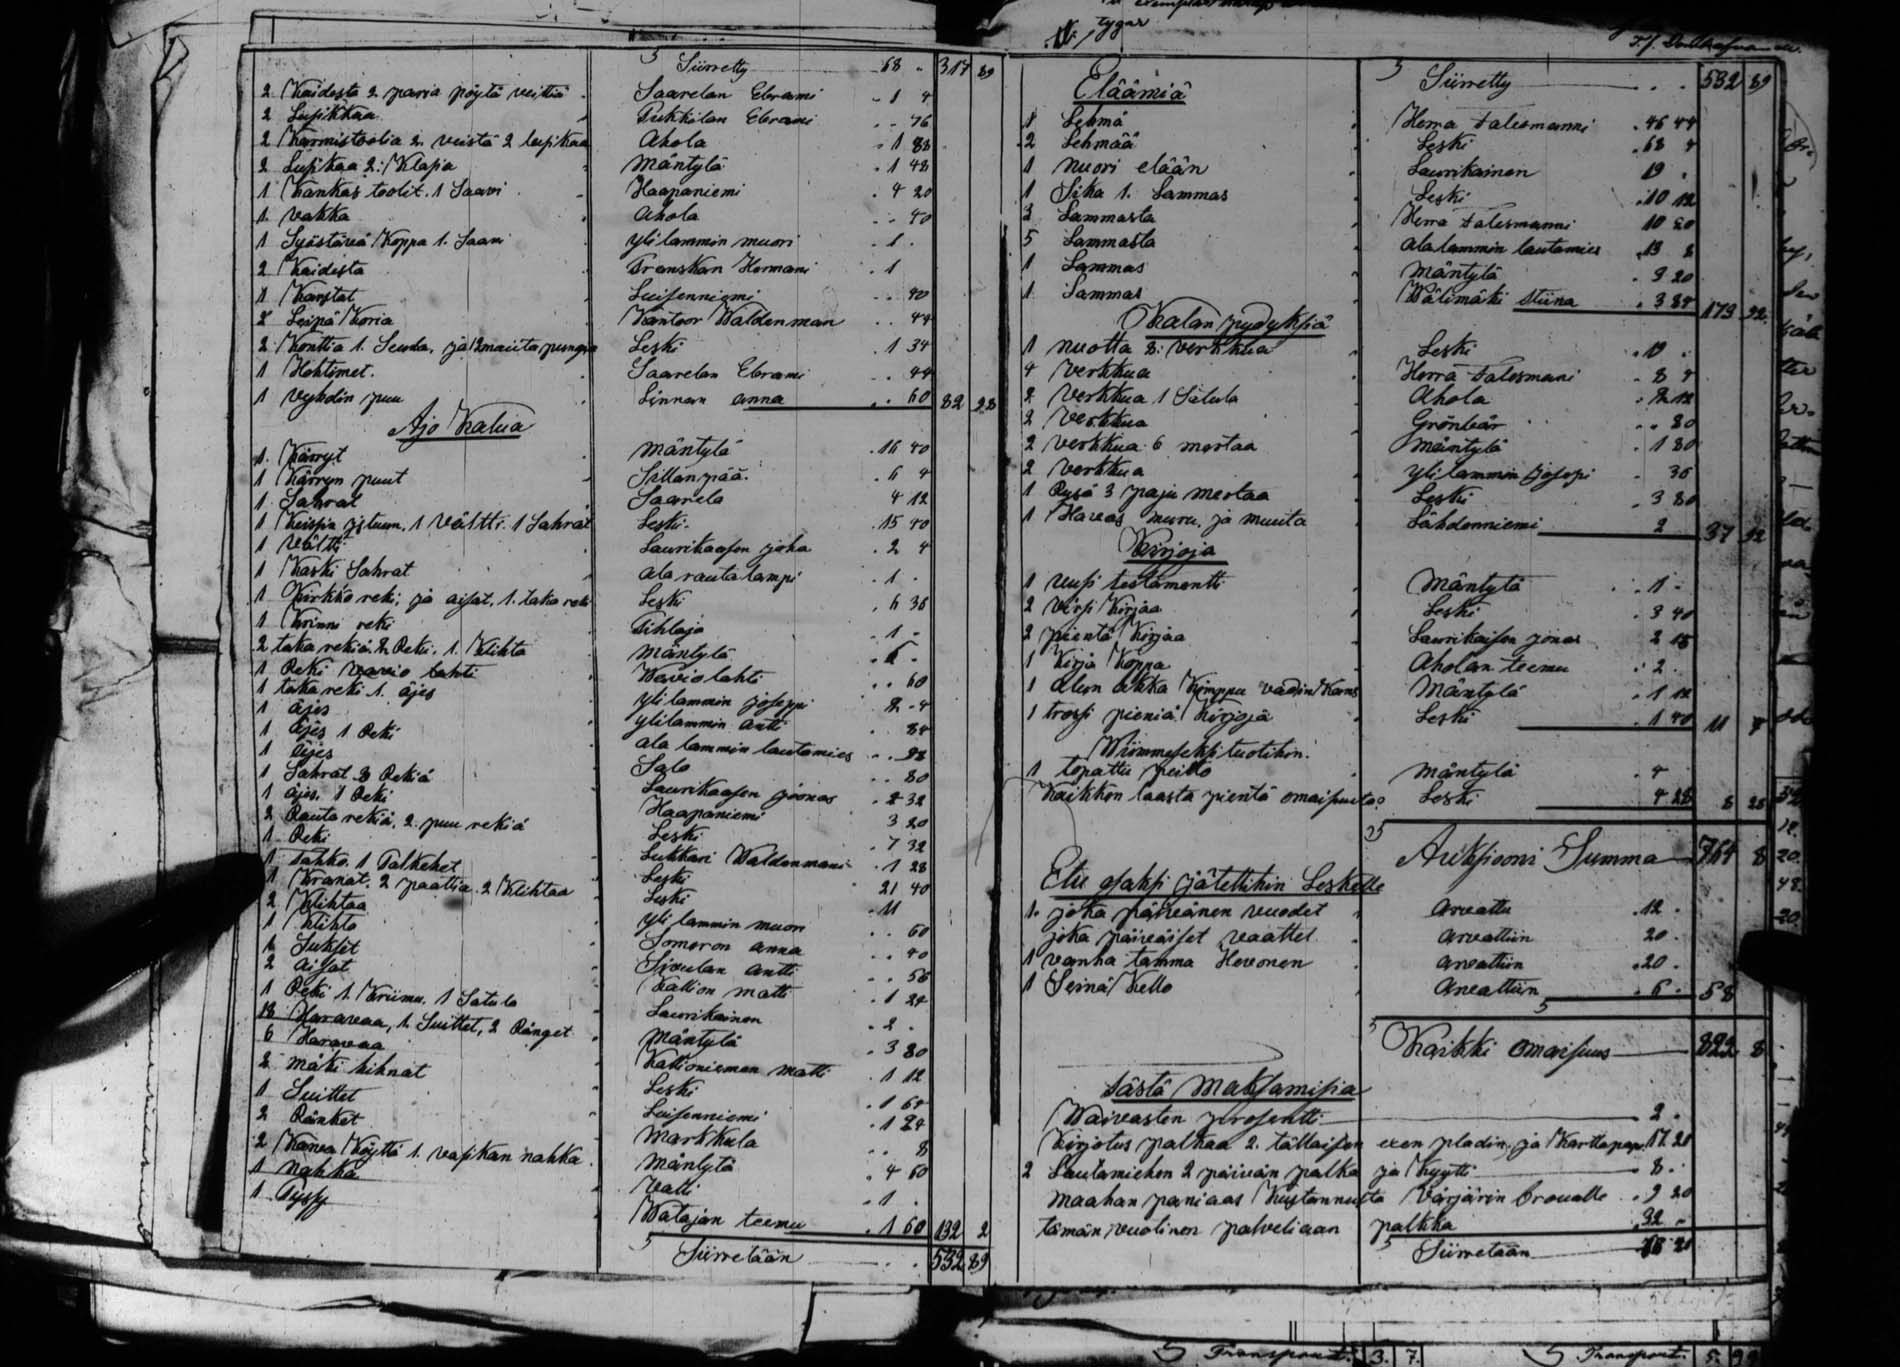 Siirretty 68 . 317 89
2 Kaidesta 2 paria pöytä veittiä Saarelan Ebrami . 1 4
2 Lusikkaa Pukkilan Ebrami . . 76
2 Karmistoolia 2 veistä 2 lusikaa Ahola . 1 88
2 Lusikaa 2: Klasia Mäntylä . 1 48
1 Kankas toolit. 1 Saavi Haapaniemi . 4 20
1 vakka Ahola . . 40
1 Syöstävä Koppa 1. Saavi ylilammin muori . 1 .
2 Kaidesta Franskan Hermani . 1
1 Karstat Luisenniemi . . 40
2 Leipä Koria Kantoor Waldenman . . 44
2 Konttia 1. Seula, ja muuta Leski . 1 34
1 Hohtimet. Saarelan Ebrami . . 44
1 vyhdin puu Linnan anna . . 60 82 28
Ajo Kalua
1. Kärryt Mäntylä . 16 40
1 Kärryn puut Sillanpää . 6 4
1. Sahrat Saarela 4 12
1 istuin, 1 vältti. 1 Sahrat Leski . 15 40
1 vältti Laurikaisen joha . 2 4
1 Kaski Sahrat ala rautalampi . 1 .
1 Kirkko reki, ja aisat, 1. taka reki Leski . 6 36
1 reki Pihlaja . 1 .
2 taka rekiä 2 Reki. 1. Klihta Mäntylä
1 Reki Wavio lahti . . 60
1 taka reki 1. äjes yli lammin joseppi 2 . 4
1 äjes yli lammin anti . 84
1 äjes 1 Reki ala lammin lautamies
1 äjes Salo . . 80
1 Sahrat 3 Rekiä Laurikaisen joonas . 2 32
1 äjes. 1 Reki Haapaniemi 3 20
2 Rauta rekiä, 2. puu rekiä Leski . 7 32
1 Reki Lukkari Waldenmani . 1 28
1 tahko. 1 Palkehet Leski 21 40
1 2 paattia. 2 Klihtaa Leski . 11
2 Klihtaa yli lammin muori . . 60
1 Klihta Someron anna . . 40
1 Sukset Sivulan antti . . 56
2 aisat Kallion matti . 1 24
1 Reki 1. Kriimu. 1 Satula Laurikainen . 2 .
18 Haravaa, 1. Suittet, 2 Ränget Mäntylä . 3 80
6 Haravaa Kallioniemen matti . 1 12
2 mäki hihnat Leski . 1 64
1 Suittet Luisenniemi . 1 24
2 Ränket Markkula . . 8
2 Köyttä 1. vasikan nahka Mäntylä . 4 60
1 Nahka Valli . 1 .
1 Pyssy Watajan teemu . 1 60 132 2
Siirretään . . 532 89
Eläämiä
Siirretty . . 532 89
1 Lehmä Herra Falesmanni . 46 44
2 Lehmää Leski . 68 4
1 nuori elään Laurikainen 19 .
1 Sika 1. Lammas Leski . 10 12
3 Lammasta Herra Falesmanni 10 80
5 Lammasta ala lammin lautamies . 13 8
1 Lammas Mäntylä . 3 20
1 Lammas Wälimäki Stiina . 3 84 179 22
Kalan pydyksiä
1 nuotta 8: verkkua Leski . 19 .
4 Verkkua Herra Falesmani . 8 4
2 Verkkua 1 Ahola . 2 12
2 Verkkua Grönbär . . 80
2 verkkua 6 mertaa Mäntylä . 1 80
2 Verkkua yli lammin Josepi . 36
1 Rysä 3 paju mertaa Leski . 3 80
1 Havas ja muuta Lähdenniemi 2 37 32
Kirjoja
1 uusi testamentti Mäntylä . . 1 .
2 virsi Kirjaa Leski . 3 40
2 pientä Kirjaa Laurikaisen jonas 2 16
1 Kirja Koppa Aholan teemu . 2 .
1 Kimppu Mäntylä . 1 12
1 trossi pieniä Kirjoja Leski . 1 40 11 8
Wiimmeseksi tuotihin.
1 topattu peitto Mäntylä . 4 .
Kaikkon laasta pientä omaisuuta Leski 4 28 8 28
Auksiooni Summa 764 8
Etu osaksi jätettihin Leskelle
1. joka päiväinen vuodet arvattu . 12 .
joka päiväiset vaattet arvattiin 20 .
1 vanha tamma Hevonen arvattiin . 20 .
1 Seinä Kello arvattiin . 6 . 58
Kaikki omaisuus 822 8
tästä Maksamisia
Waivasten prosentti 2 .
Kirjotus palkaa 2. tällaisen exenpladin, ja Karttapap. 17. 21
2 Lautamiehen 2 päivän palka ja Kyyti 8 .
maahan paniaas Kustannusta Värjärin Broualle . 9 20
tämän vuotinen palveliaan palkka 32 .
Siirretään 68 21
Transport. 3. 7.
Transport. 5.